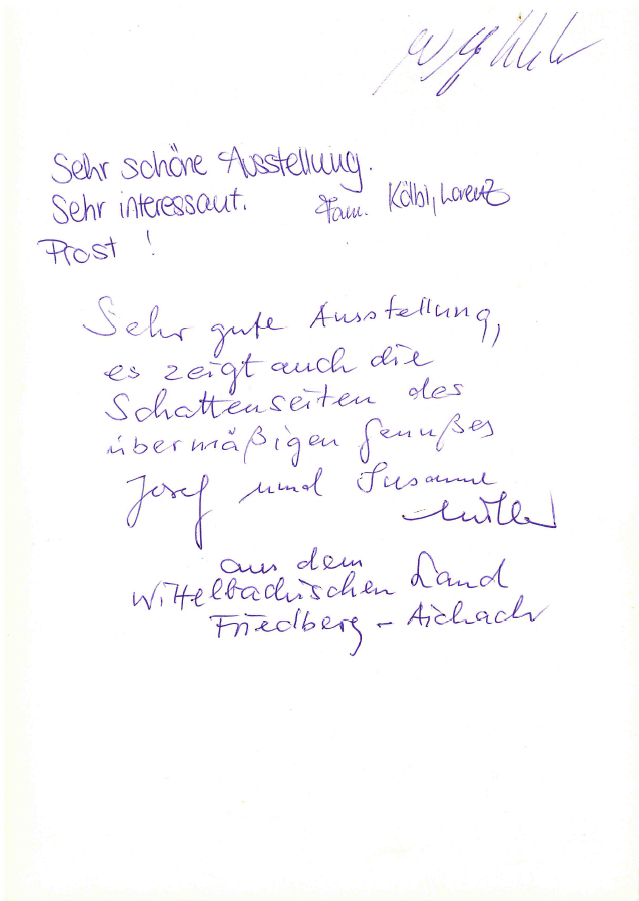 Sehr schöne Ausstellung.
Sehr interessant. Fam. Kölbl, Lorenz
Prost !
Sehr gute Ausstellung,
es zeigt auch die
Schattenseiten des
übermäßigen Genußes
Josef und Susanne
Müller
aus dem
Wittelbachischen Land
Friedberg - Aichach